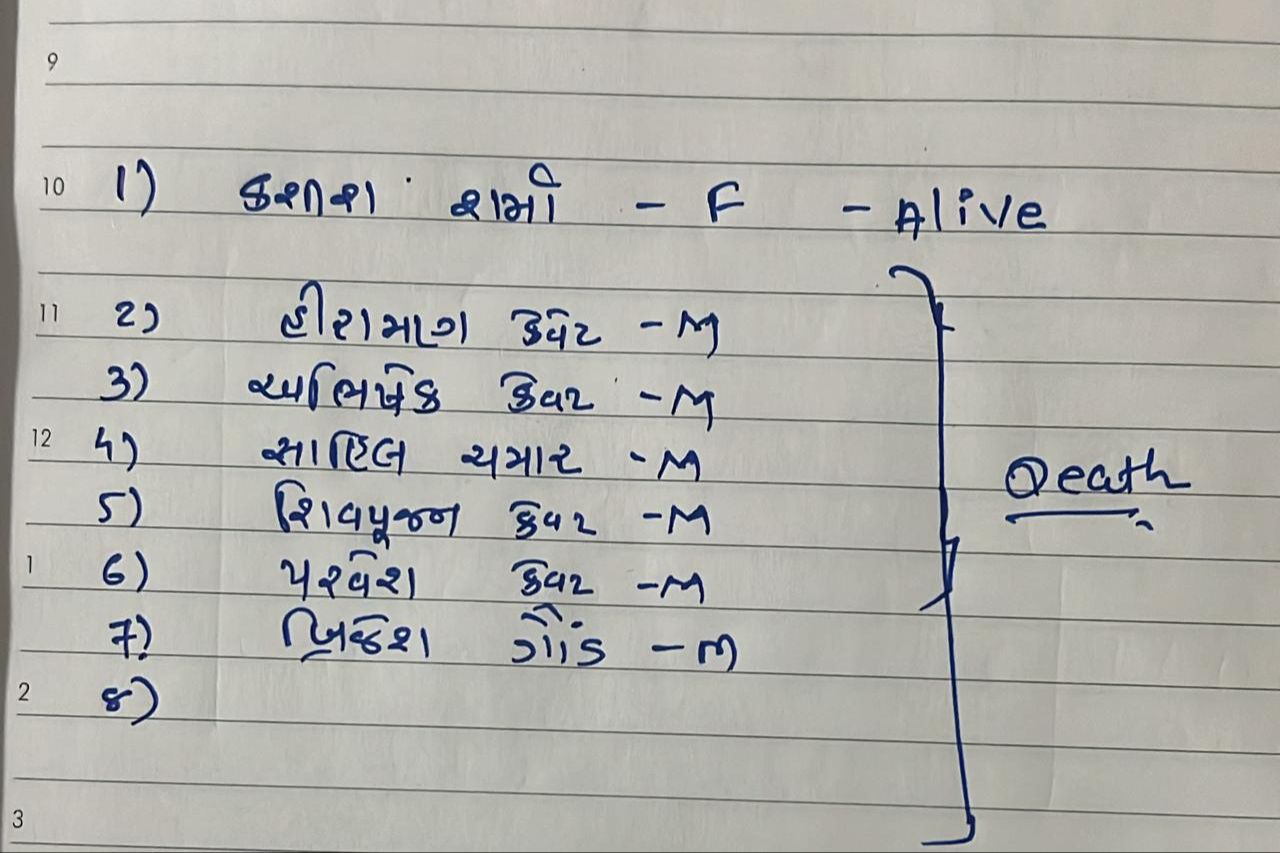 9
10 1) કશીશ શર્મા - F - Alive
11 2) હીરામણ કેવટ - M
3) અભિષેક કેવટ - M
12 4) સાહિલ ચમાર - M
Death
5) શિવપૂજન કેવટ - M
1 6) પરવેશ કેવટ - M
7) બ્રિજેશ ગોંડ - M
2 8)
3